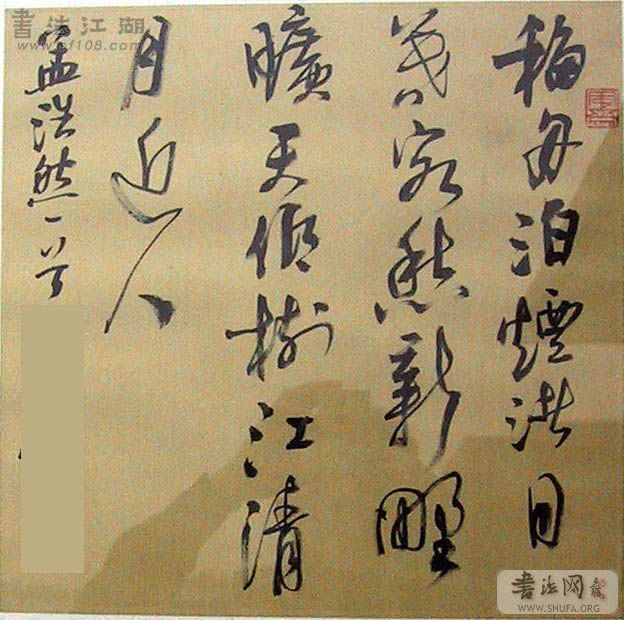 移舟泊煙渚日
暮客愁新野
曠天低樹江清
月近人
孟浩然一首
書法江湖
www.cf108.com
書法网
WWW.SHUFA.ORG